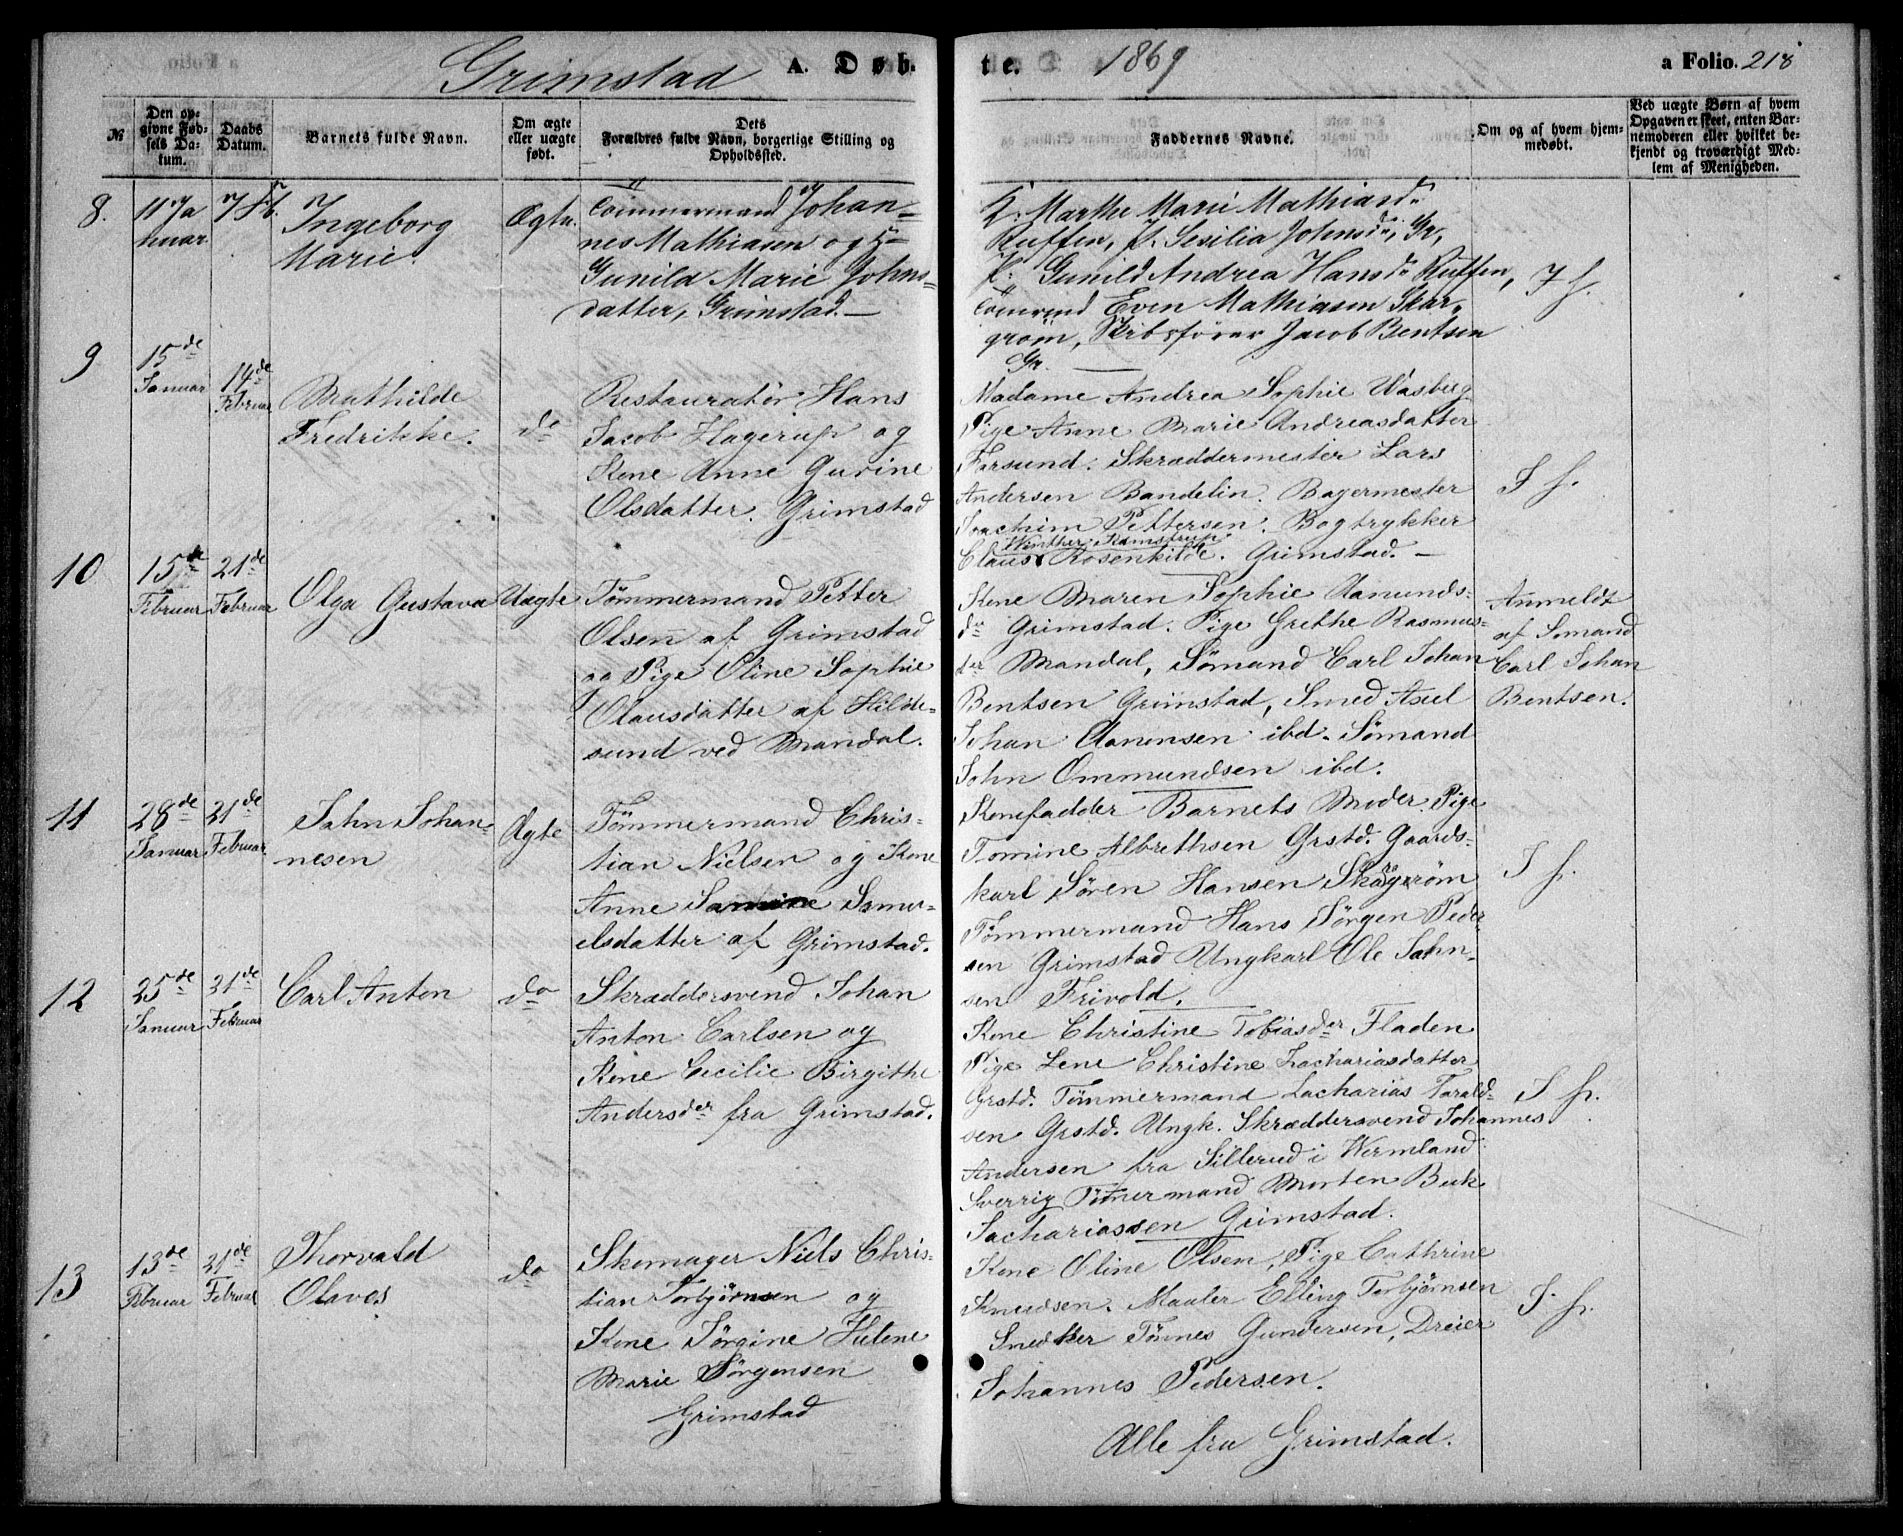 Grimstad A. Døb-
te. 1869 a Folio. 218
№
Den op-
givne Fød-
sels Da-
tum.
Daabs
Datum.
Barnets fulde Navn.
Om ægte
eller uægte
født.
Dets
Forældres fulde Navn, borgerlige Stilling og
Opholdssted.
Faddernes Navne.
Om og af hvem hjem-
medøbt.
Ved uægte Børn af hvem
Opgaven er skeet, enten Bar-
nemoderen eller hvilket be-
kjendt og troværdigt Med-
lem af Menigheden.
8.
11 Ja
nuar
7 Fb.
Ingeborg
Marie
Ægte.
Tömmermand Johan-
nes Mathiasen og H
Gunild Marie Johns-
datter, Grimstad. —
K. Marthe Marie Mathiasd.
Ruffen, P. Sesilia Johnsd., Gr,
P. Gunild Andrea Hansd. Ruffen,
Tömmend Even Mathiasen Skar-
grøm, Skibsfører Jacob Bentsen
Gr.
J h.
9
15de
Januar
14de
Februar
Mathilde
Fredrikke.
do
Restauratör Hans
Jacob Hagerup og
Kone Anne Gurine
Olsdatter. Grimstad
Madame Andrea Sophie Aasberg
Pige Anne Marie Andreasdatter
Farsund. Skræddermester Lars
Andersen Bandelin. Bagermester
Joachim Pettersen. Bogtrykker
Winther Kamstrup
Claus Rosenkilde. Grimstad. —
J h.
10
15de
Februar
21de
Februar
Olga Gustava
Uægte
Tømmermand Petter
Olsen af Grimstad
og Pige Oline Sophie
Olausdatter af Hille-
sund ved Mandal.
Kone Maren Sophie Aamunds-
dr Grimstad. Pige Grethe Rasmus-
der Mandal, Sömand Carl Johan
Bentsen Grimstad, Smed Axel
Johan Aanensen ibd. Sömand
John Ommundsen ibd.
Anmeldt
af Sømand
Carl Johan
Bentsen.
11
28de
Januar
21de
Februar
Jahn Johan-
nesen
Ægte
Tömmermand Chris-
tian Nielsen og Kone
Anne Samine Samu-
elsdatter af Grimstad.
Konefadder Barnets Moder. Pige
Tomine Albrethsen Grstd. Gaards-
karl Sören Hansen Skargrøm
Tömmermand Hans Jörgen Peder-
sen Grimstad Ungkarl Ole Jahn-
sen Frivold.
J h.
12
25de
Januar
21de
Februar
Carl Anton
do
Skræddersvend Johan
Anton Carlsen og
Kone Cecilie Birgithe
Andersder fra Grimstad.
Kone Christine Tobiasder Fladen
Pige Lene Christine Zachariasdatter
Grstd. Tömmermand Zacharias Tarald-
sen Grstd. Ungk. Skræddersvend Johannes
Andersen fra Sillerud i Wermland
Sverrig Tömermand Morten Bek
Sachariassen Grimstad.
J h.
13
13de
Februar
21de
Februar
Thorvald
Olaves
do
Skomager Niels Chris-
tian Torbjörnsen og
Kone Jörgine Helene
Marie Jörgensen
Grimstad
Kone Oline Olsen, Pige Cathrine
Knudsen. Maaler Elling Torbjørnsen
Snedker Tönnes Gundersen, Dreier
Johannes Pedersen.
Alle fra Grimstad.
J. h.